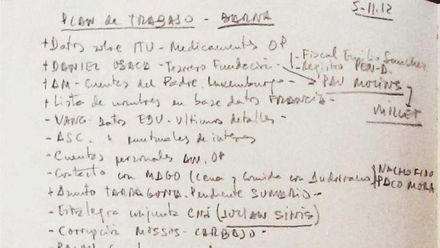 5-11.12
PLAN de TRABAJO - BARNA
+ Datos sobre ITV - Medicamentos OP
+ DANIEL OSACA - Tesorero Fundación - Fiscal Emilio Sanchez
- Registro PEN-D.
+ AM - Cuentas del Padre. Luxemburgo - PAU MOLINS
+ Lista de nombres en base datos FRANCIA - MILLET
- VANG. Datos EDU - Ultimos detalles -
- ASC. puntuales de interes
- Cuentas personales OP
- Contacto con MAGO (Cena y comida con NACHO FIDO
PACO MORA
+ Asunto TARRAGONA. Pendiente SUMARIO -
- Estrategia conjunta CNI (JULIAN SINIS)
- Corrupción MOSSOS - CARBAJO -